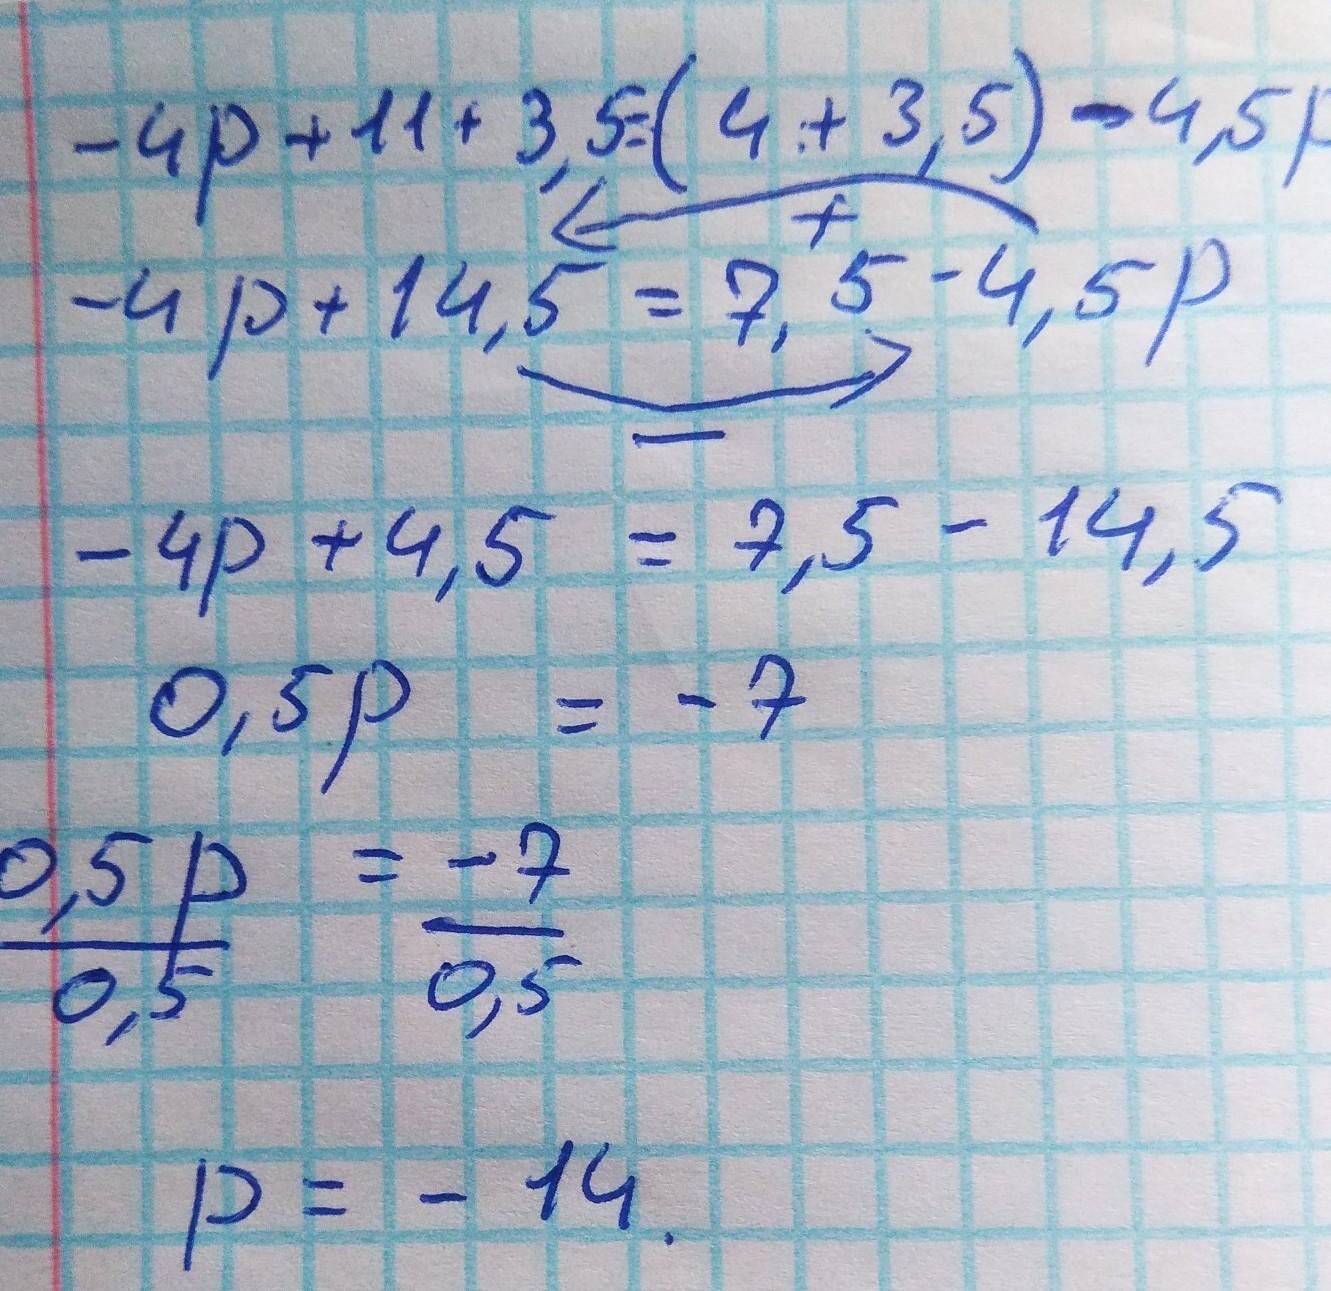 -4p+11+3,5=(4+3,5)-4,5p
+
-4p+14,5 = 7,5-4,5p
-
-4p+4,5 = 7,5 - 14,5
0,5p = -7
0,5p = -7
0,5 0,5
p = - 14.